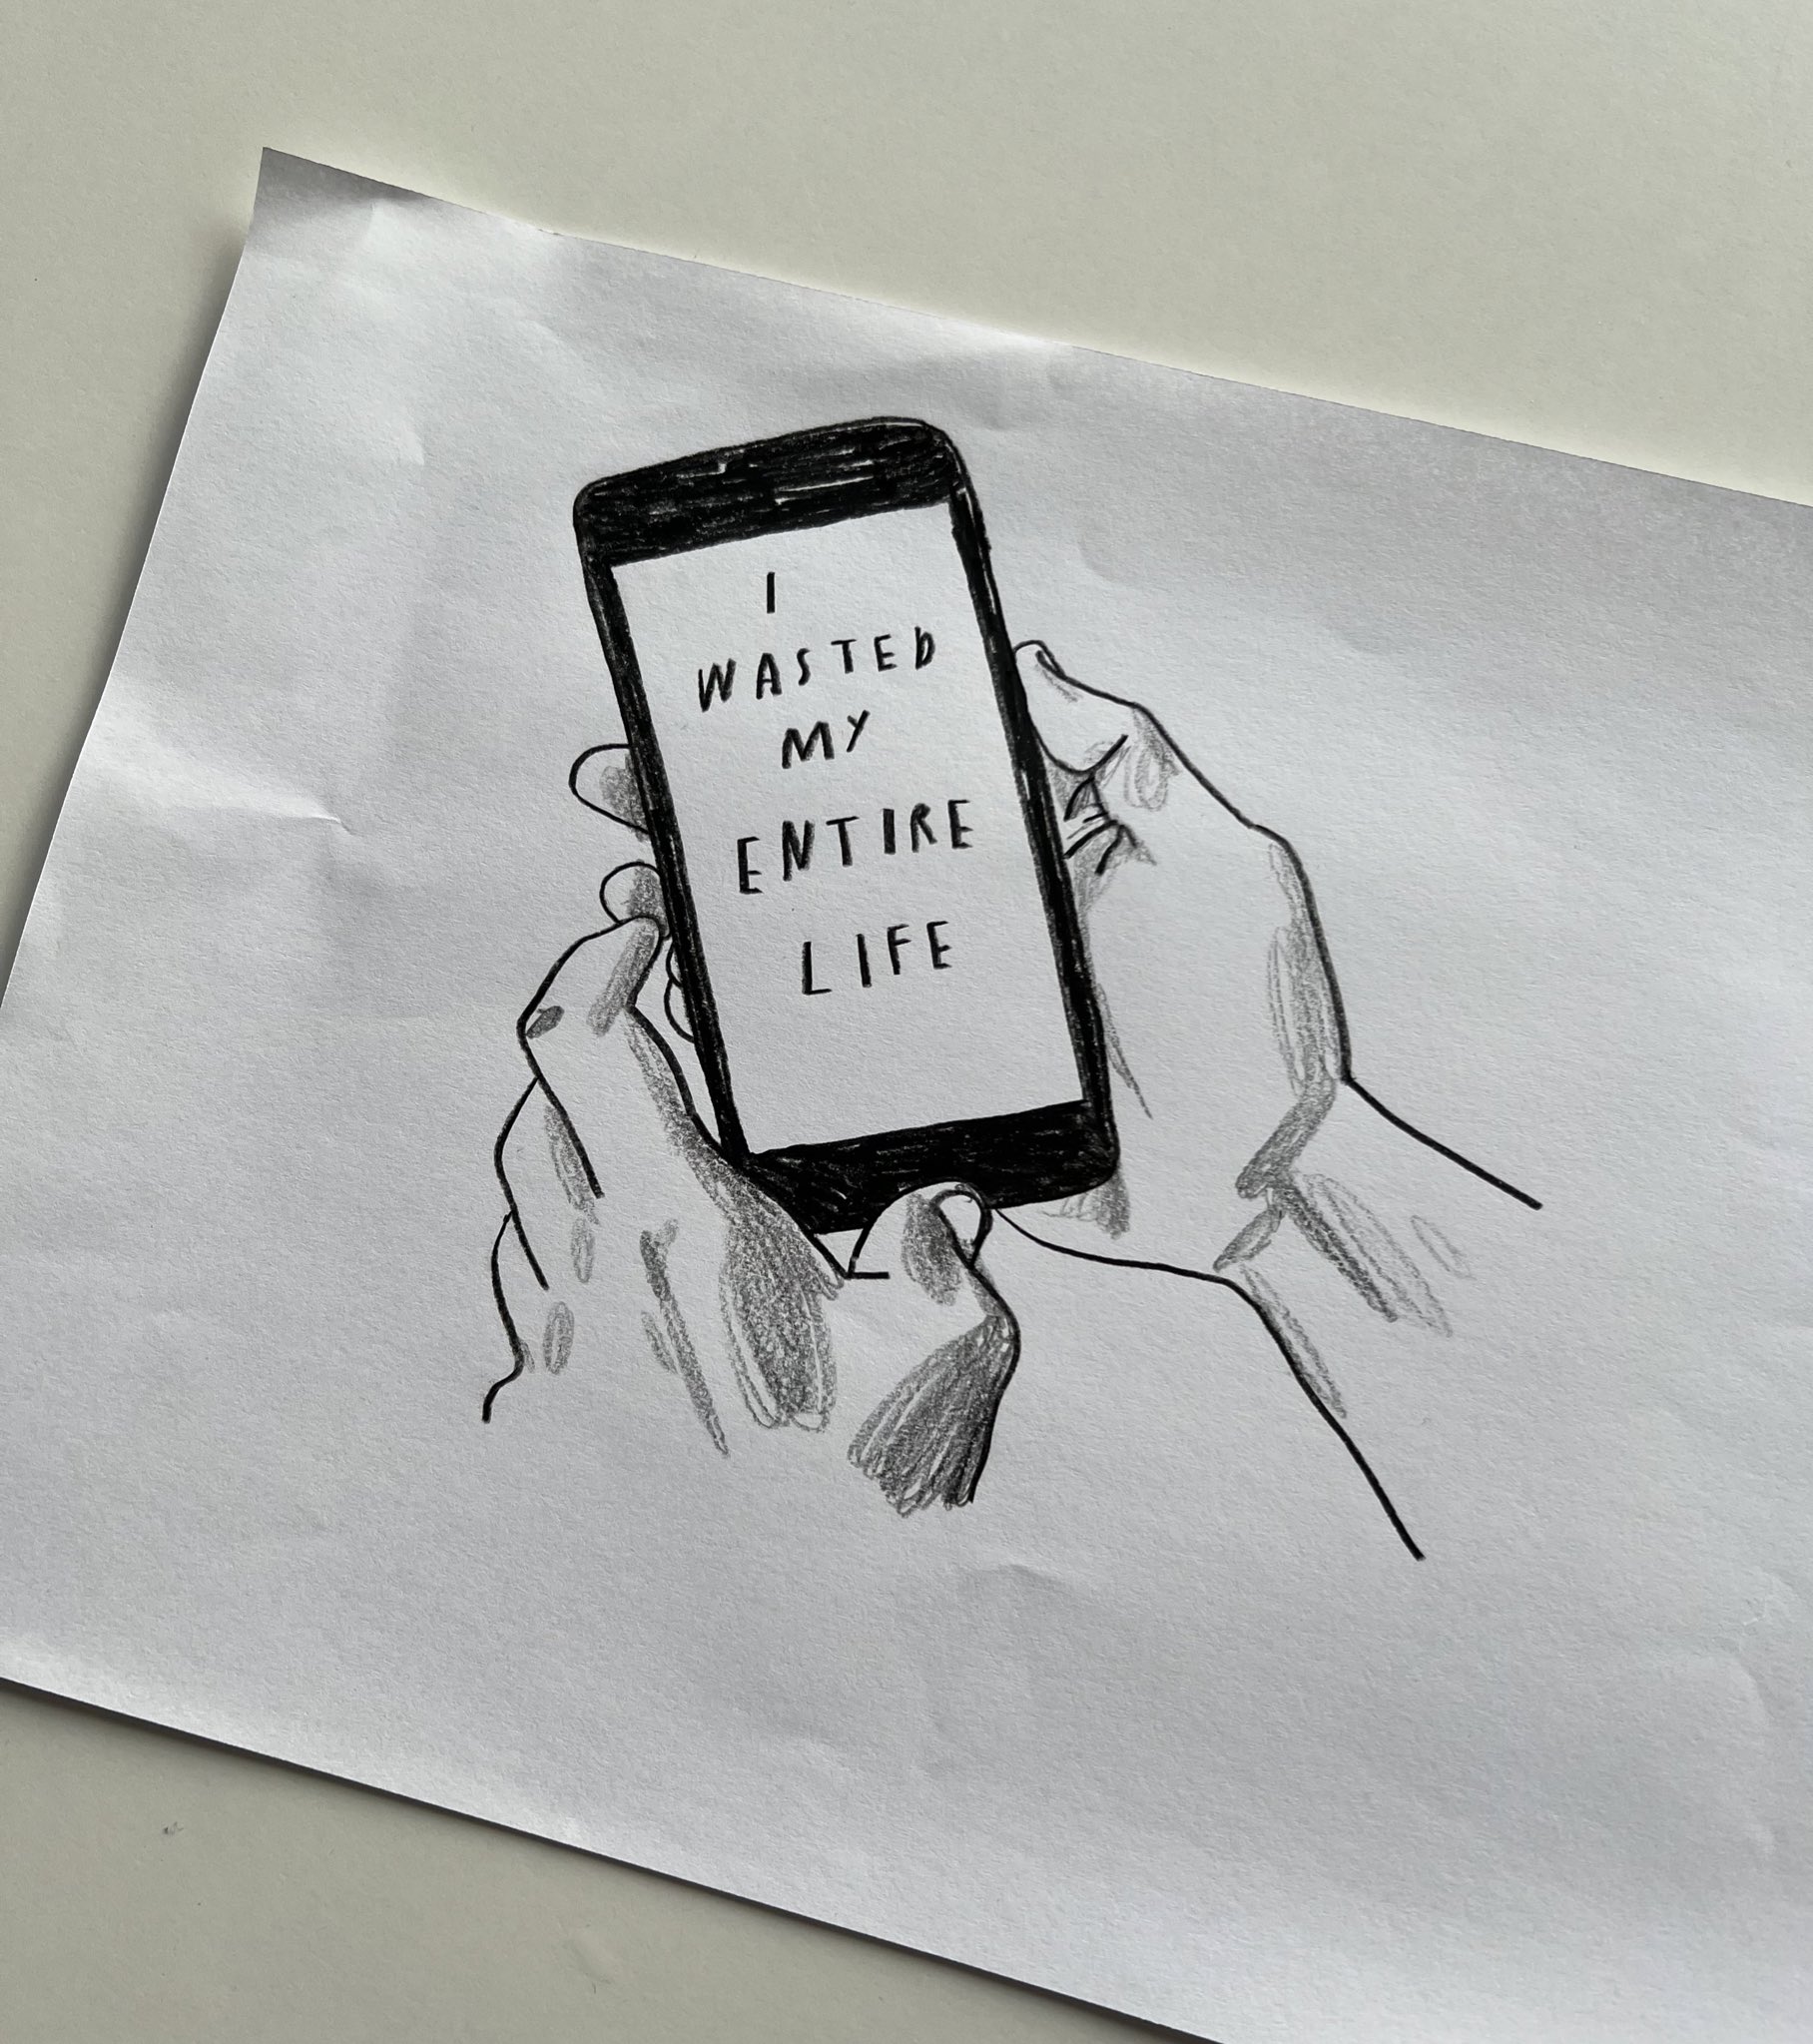 I
WASTED
MY
ENTIRE
LIFE